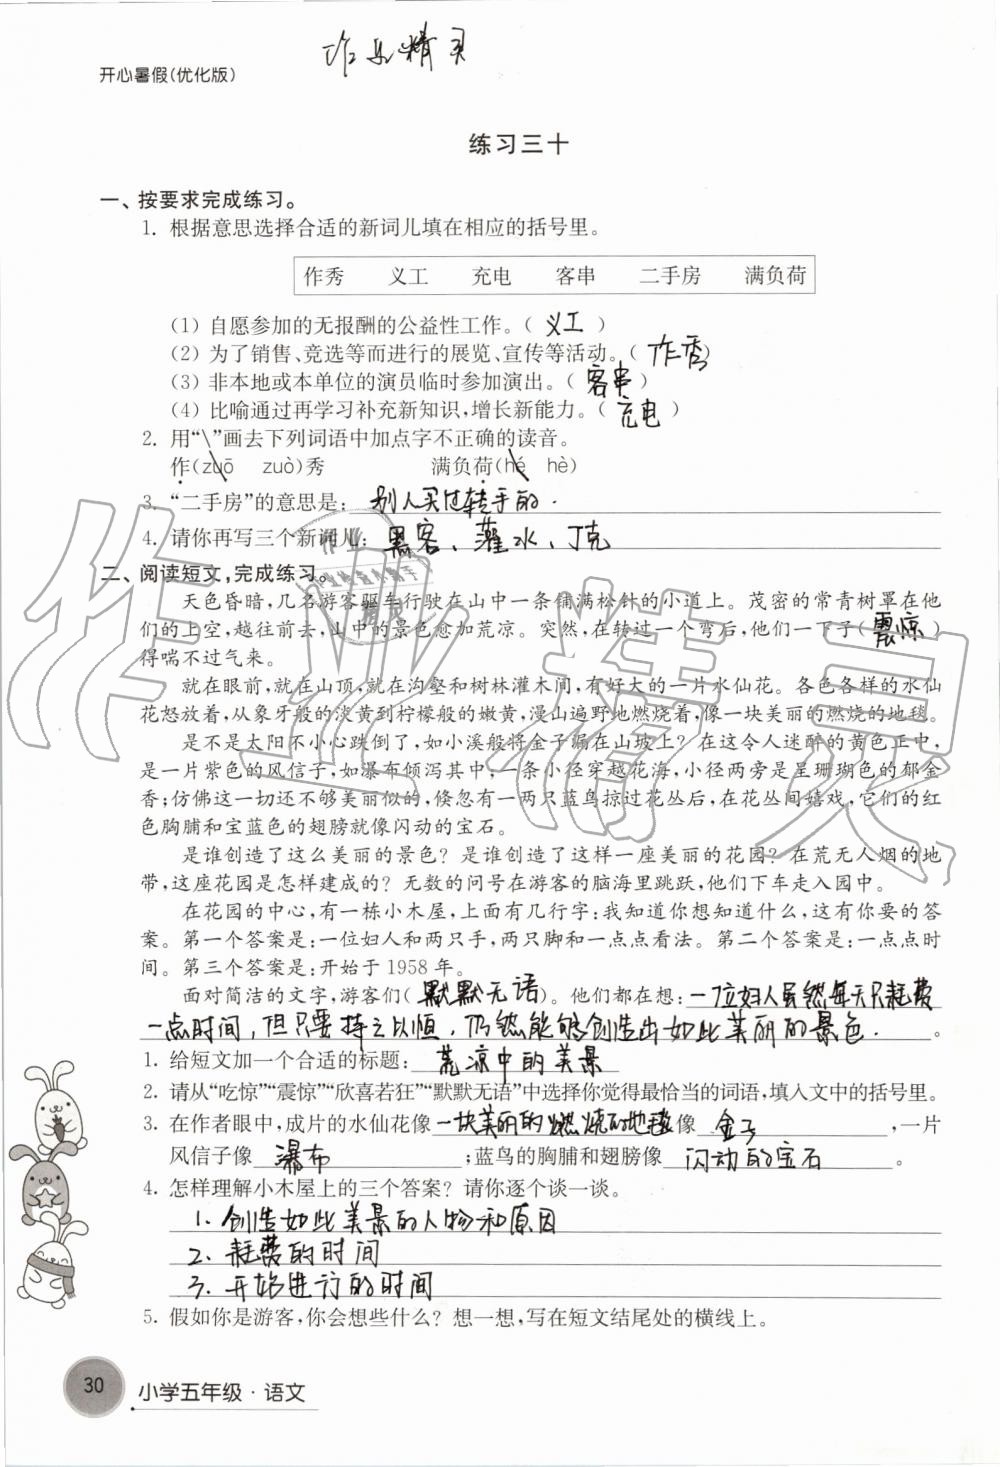 作业精灵
开心暑假(优化版)
练习三十
一、按要求完成练习。
1. 根据意思选择合适的新词儿填在相应的括号里。
作秀 义工 充电 客串 二手房 满负荷
(1) 自愿参加的无报酬的公益性工作。( 义工 )
(2) 为了销售、竞选等而进行的展览、宣传等活动。( 作秀 )
(3) 非本地或本单位的演员临时参加演出。( 客串 )
(4) 比喻通过再学习补充新知识,增长新能力。( 充电 )
2. 用“\”画去下列词语中加点字不正确的读音。
作(zuō zuò)秀 满负荷(hé hè)
3. “二手房”的意思是: 别人买过转手的.
4. 请你再写三个新词儿: 黑客、灌水、丁克
二、阅读短文,完成练习。
天色昏暗,几名游客驱车行驶在山中一条铺满松针的小道上。茂密的常青树罩在他
们的上空,越往前去,山中的景色愈加荒凉。突然,在转过一个弯后,他们一下子( 震惊 )
得喘不过气来。
就在眼前,就在山顶,就在沟壑和树林灌木间,有好大的一片水仙花。各色各样的水仙
花怒放着,从象牙般的淡黄到柠檬般的嫩黄,漫山遍野地燃烧着,像一块美丽的燃烧的地毯。
是不是太阳不小心跌倒了,如小溪般将金子漏在山坡上?在这令人迷醉的黄色正中,
是一片紫色的风信子,如瀑布倾泻其中;一条小径穿越花海,小径两旁是星珊瑚色的郁金
香;仿佛这一切还不够美丽似的,倏忽有一两只蓝鸟掠过花丛后,在花丛间嬉戏,它们的红
色胸脯和宝蓝色的翅膀就像闪动的宝石。
是谁创造了这么美丽的景色?是谁创造了这样一座美丽的花园?在荒无人烟的地
带,这座花园是怎样建成的?无数的问号在游客的脑海里跳跃,他们下车走入园中。
在花园的中心,有一栋小木屋,上面有几行字:我知道你想知道什么,这有你要的答
案。第一个答案是:一位妇人和两只手,两只脚和一点点看法。第二个答案是:一点点时
间。第三个答案是:开始于1958年。
面对简洁的文字,游客们( 默默无语 )。他们都在想: 一位妇人虽然每天只耗费
一点时间,但只要持之以恒,仍然能够创造出如此美丽的景色. 。
1. 给短文加一个合适的标题: 荒凉中的美景
2. 请从“吃惊”“震惊”“欣喜若狂”“默默无语”中选择你觉得最恰当的词语,填入文中的括号里。
3. 在作者眼中,成片的水仙花像 一块美丽的燃烧的地毯 像 金子 ,一片
风信子像 瀑布 ;蓝鸟的胸脯和翅膀像 闪动的宝石 。
4. 怎样理解小木屋上的三个答案?请你逐个谈一谈。
1. 创造如此美景的人物和原因
2. 耗费的时间
3. 开始进行的时间
5. 假如你是游客,你会想些什么?想一想,写在短文结尾处的横线上。
30
小学五年级·语文
作业精灵